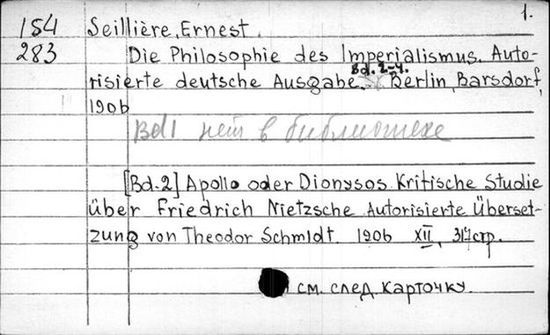 1.
154 Seillière, Ernest.
283 Die Philosophie des Imperialismus. Auto-
risierte deutsche Ausgabe. Bd. 2-4. Berlin, Barsdorf,
1906
Bd 1 нет в библиотеке
[Bd. 2] Apollo oder Dionysos. Kritische Studie
über Friedrich Nietzsche. Autorisierte Überset-
zung von Theodor Schmidt. 1906 XII, 317 стр.
см. след. карточку.